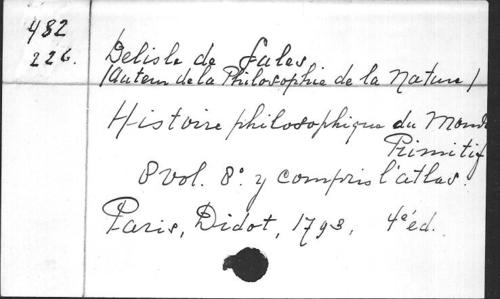 482
226.
Delisle de Sales
(Auteur de la Philosophie de la Nature)
Histoire philosophique du Monde
Primitif
8 vol. 8º. y compris l'atlas.
Paris, Didot, 1793, 4e éd.